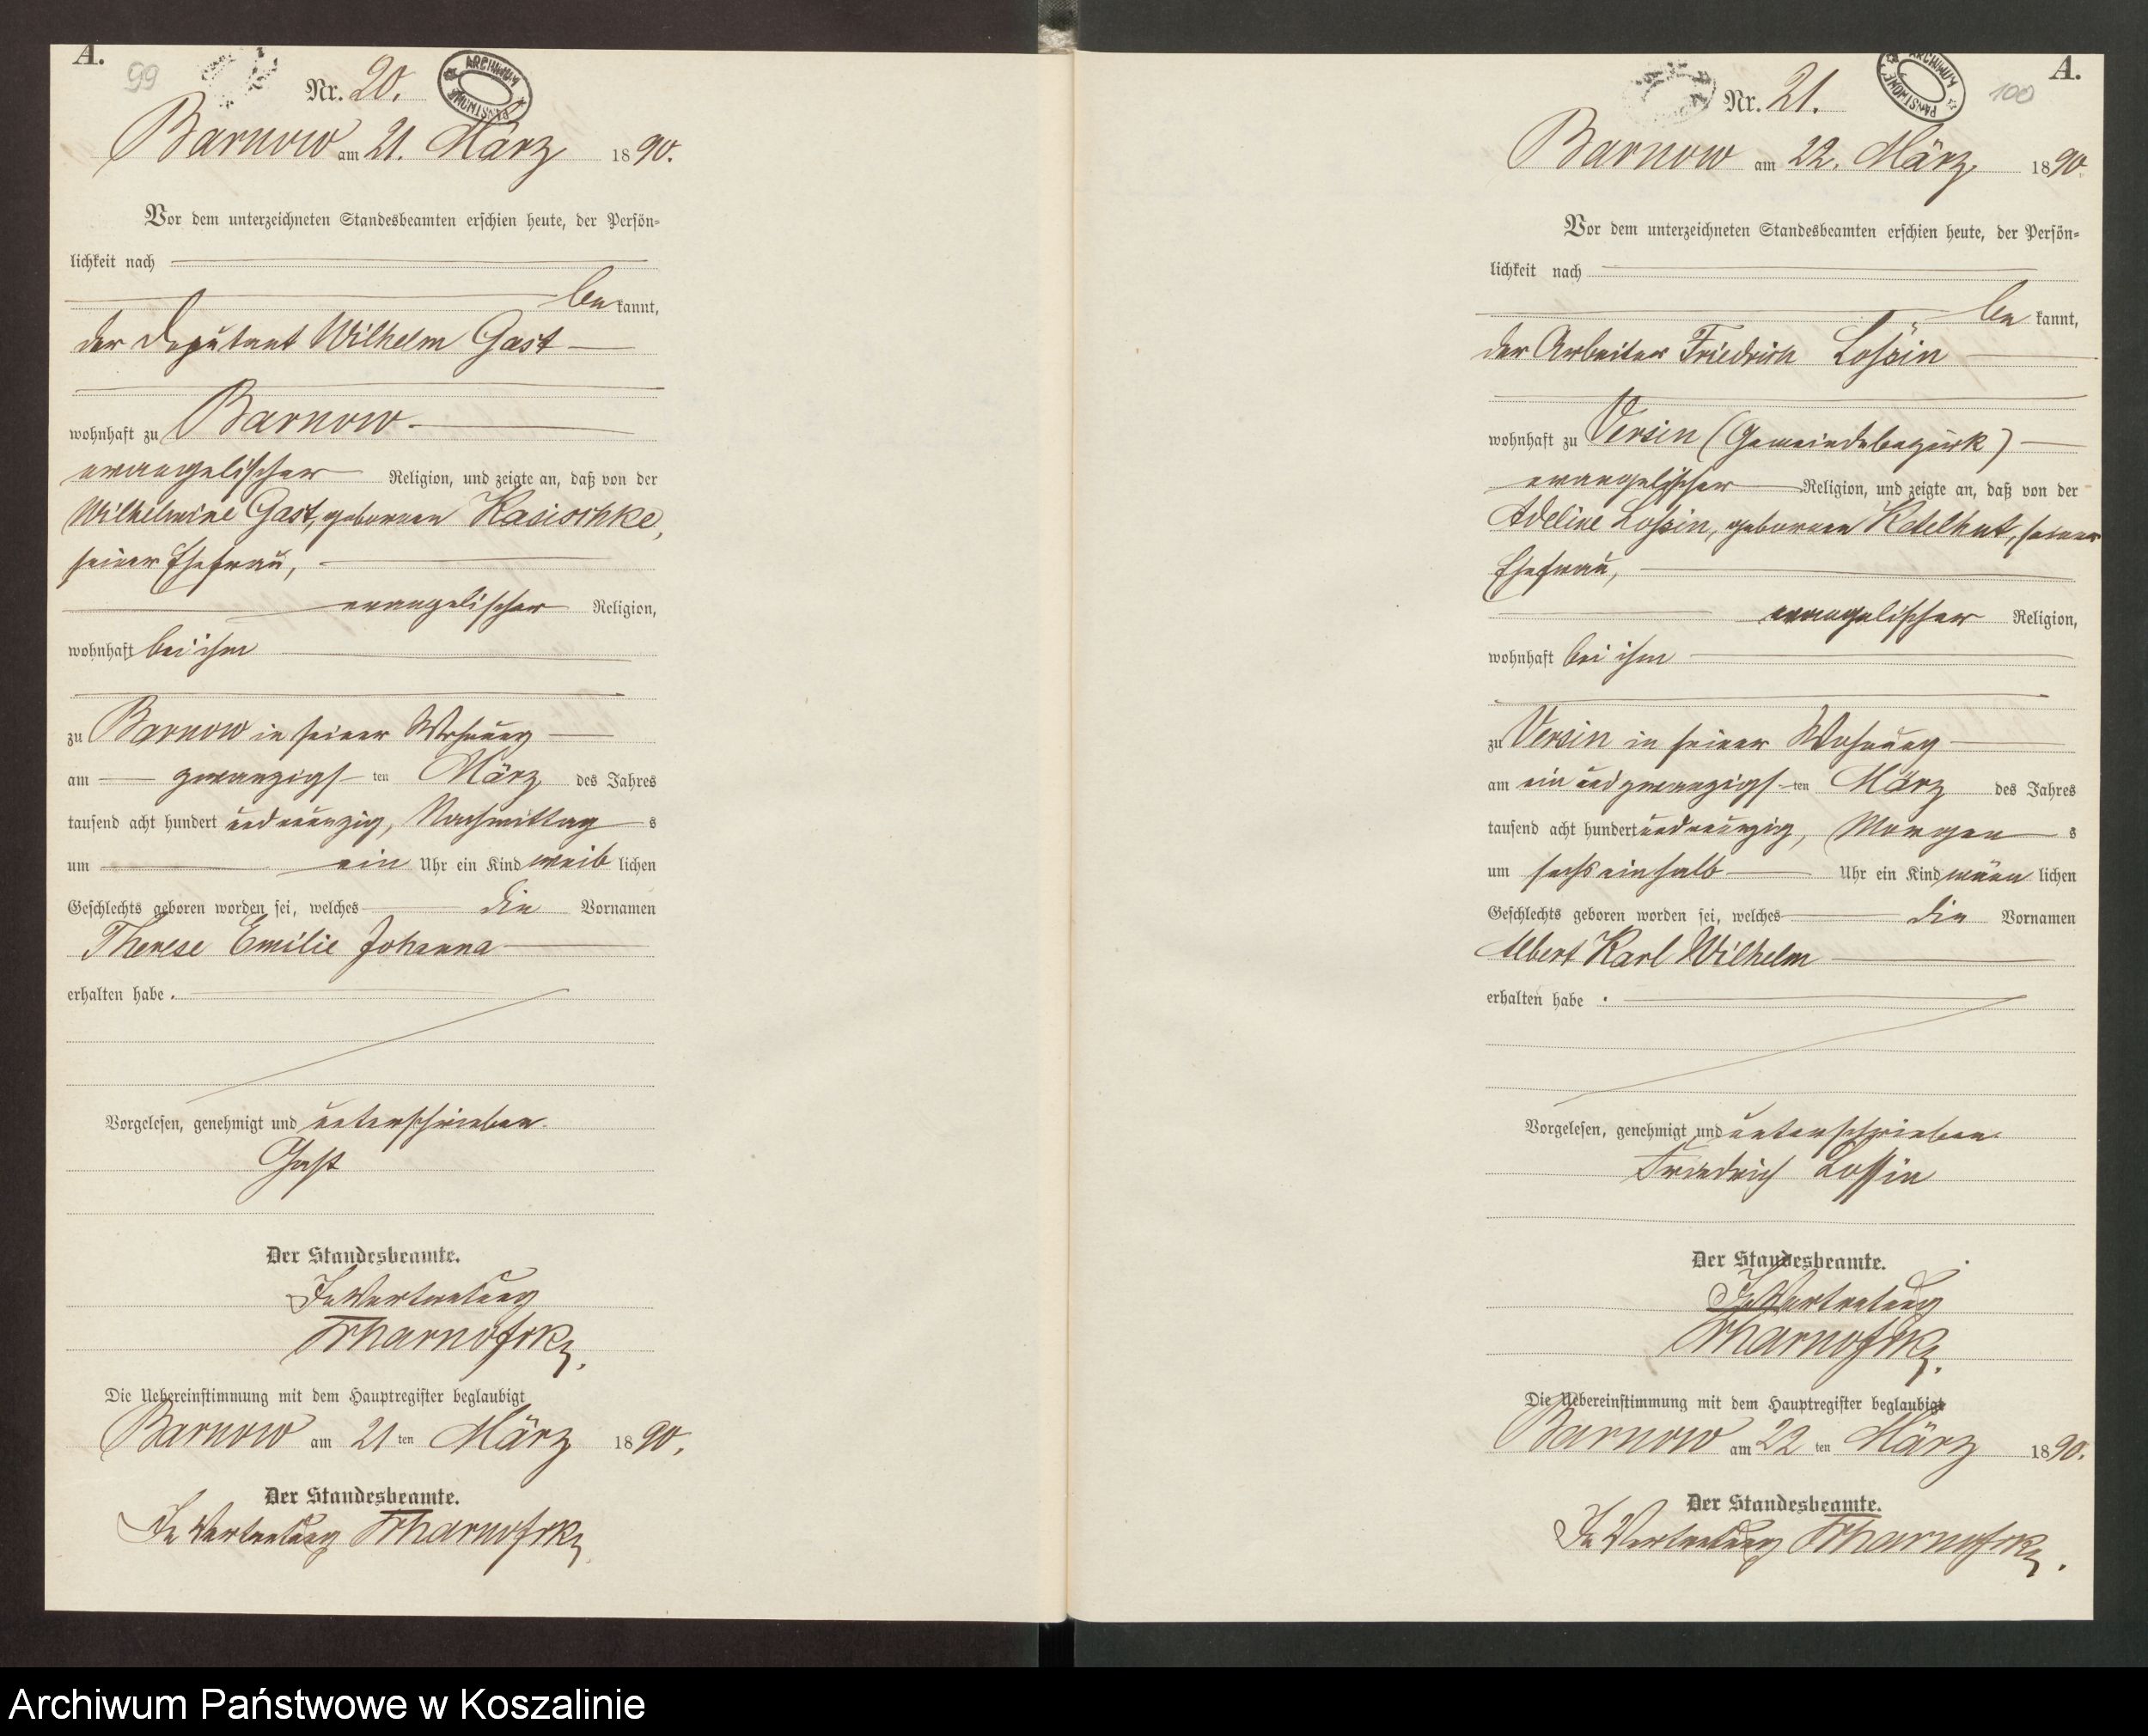 A.
99
Nr. 20.
ARCHIWUM PAŃSTWOWE
Barnow am 21. März 1890.
Vor dem unterzeichneten Standesbeamten erschien heute, der Persön-
lichkeit nach
bekannt,
der Deputant Wilhelm Gast
wohnhaft zu Barnow.
evangelischer Religion, und zeigte an, daß von der
Wilhelmine Gast, geborenen Kasischke,
seiner Ehefrau,
evangelischer Religion,
wohnhaft bei ihm
zu Barnow in seiner Wohnung
am zwanzigsten März des Jahres
tausend acht hundert und neunzig, Nachmittags
um ein Uhr ein Kind weiblichen
Geschlechts geboren worden sei, welches die Vornamen
Therese Emilie Johanna
erhalten habe.
Vorgelesen, genehmigt und unterschrieben.
Gast
Der Standesbeamte.
In Vertretung
Die Uebereinstimmung mit dem Hauptregister beglaubigt
Barnow am 21ten März 1890.
Der Standesbeamte.
In Vertretung
A.
100
Nr. 21.
ARCHIWUM PAŃSTWOWE
Barnow am 22. März 1890.
Vor dem unterzeichneten Standesbeamten erschien heute, der Persön-
lichkeit nach
bekannt,
der Arbeiter Friedrich Lossin
wohnhaft zu Versin (Gemeindebezirk)
evangelischer Religion, und zeigte an, daß von der
Adeline Lossin, geborenen Ketelhut, seiner
Ehefrau,
evangelischer Religion,
wohnhaft bei ihm
zu Versin in seiner Wohnung
am ein und zwanzigsten März des Jahres
tausend acht hundert und neunzig, Morgens
um sechs einhalb Uhr ein Kind männlichen
Geschlechts geboren worden sei, welches die Vornamen
Albert Karl Wilhelm
erhalten habe.
Vorgelesen, genehmigt und unterschrieben.
Friedrich Lossin
Der Standesbeamte.
In Vertretung
Die Uebereinstimmung mit dem Hauptregister beglaubigt
Barnow am 22ten März 1890.
Der Standesbeamte.
In Vertretung
Archiwum Państwowe w Koszalinie